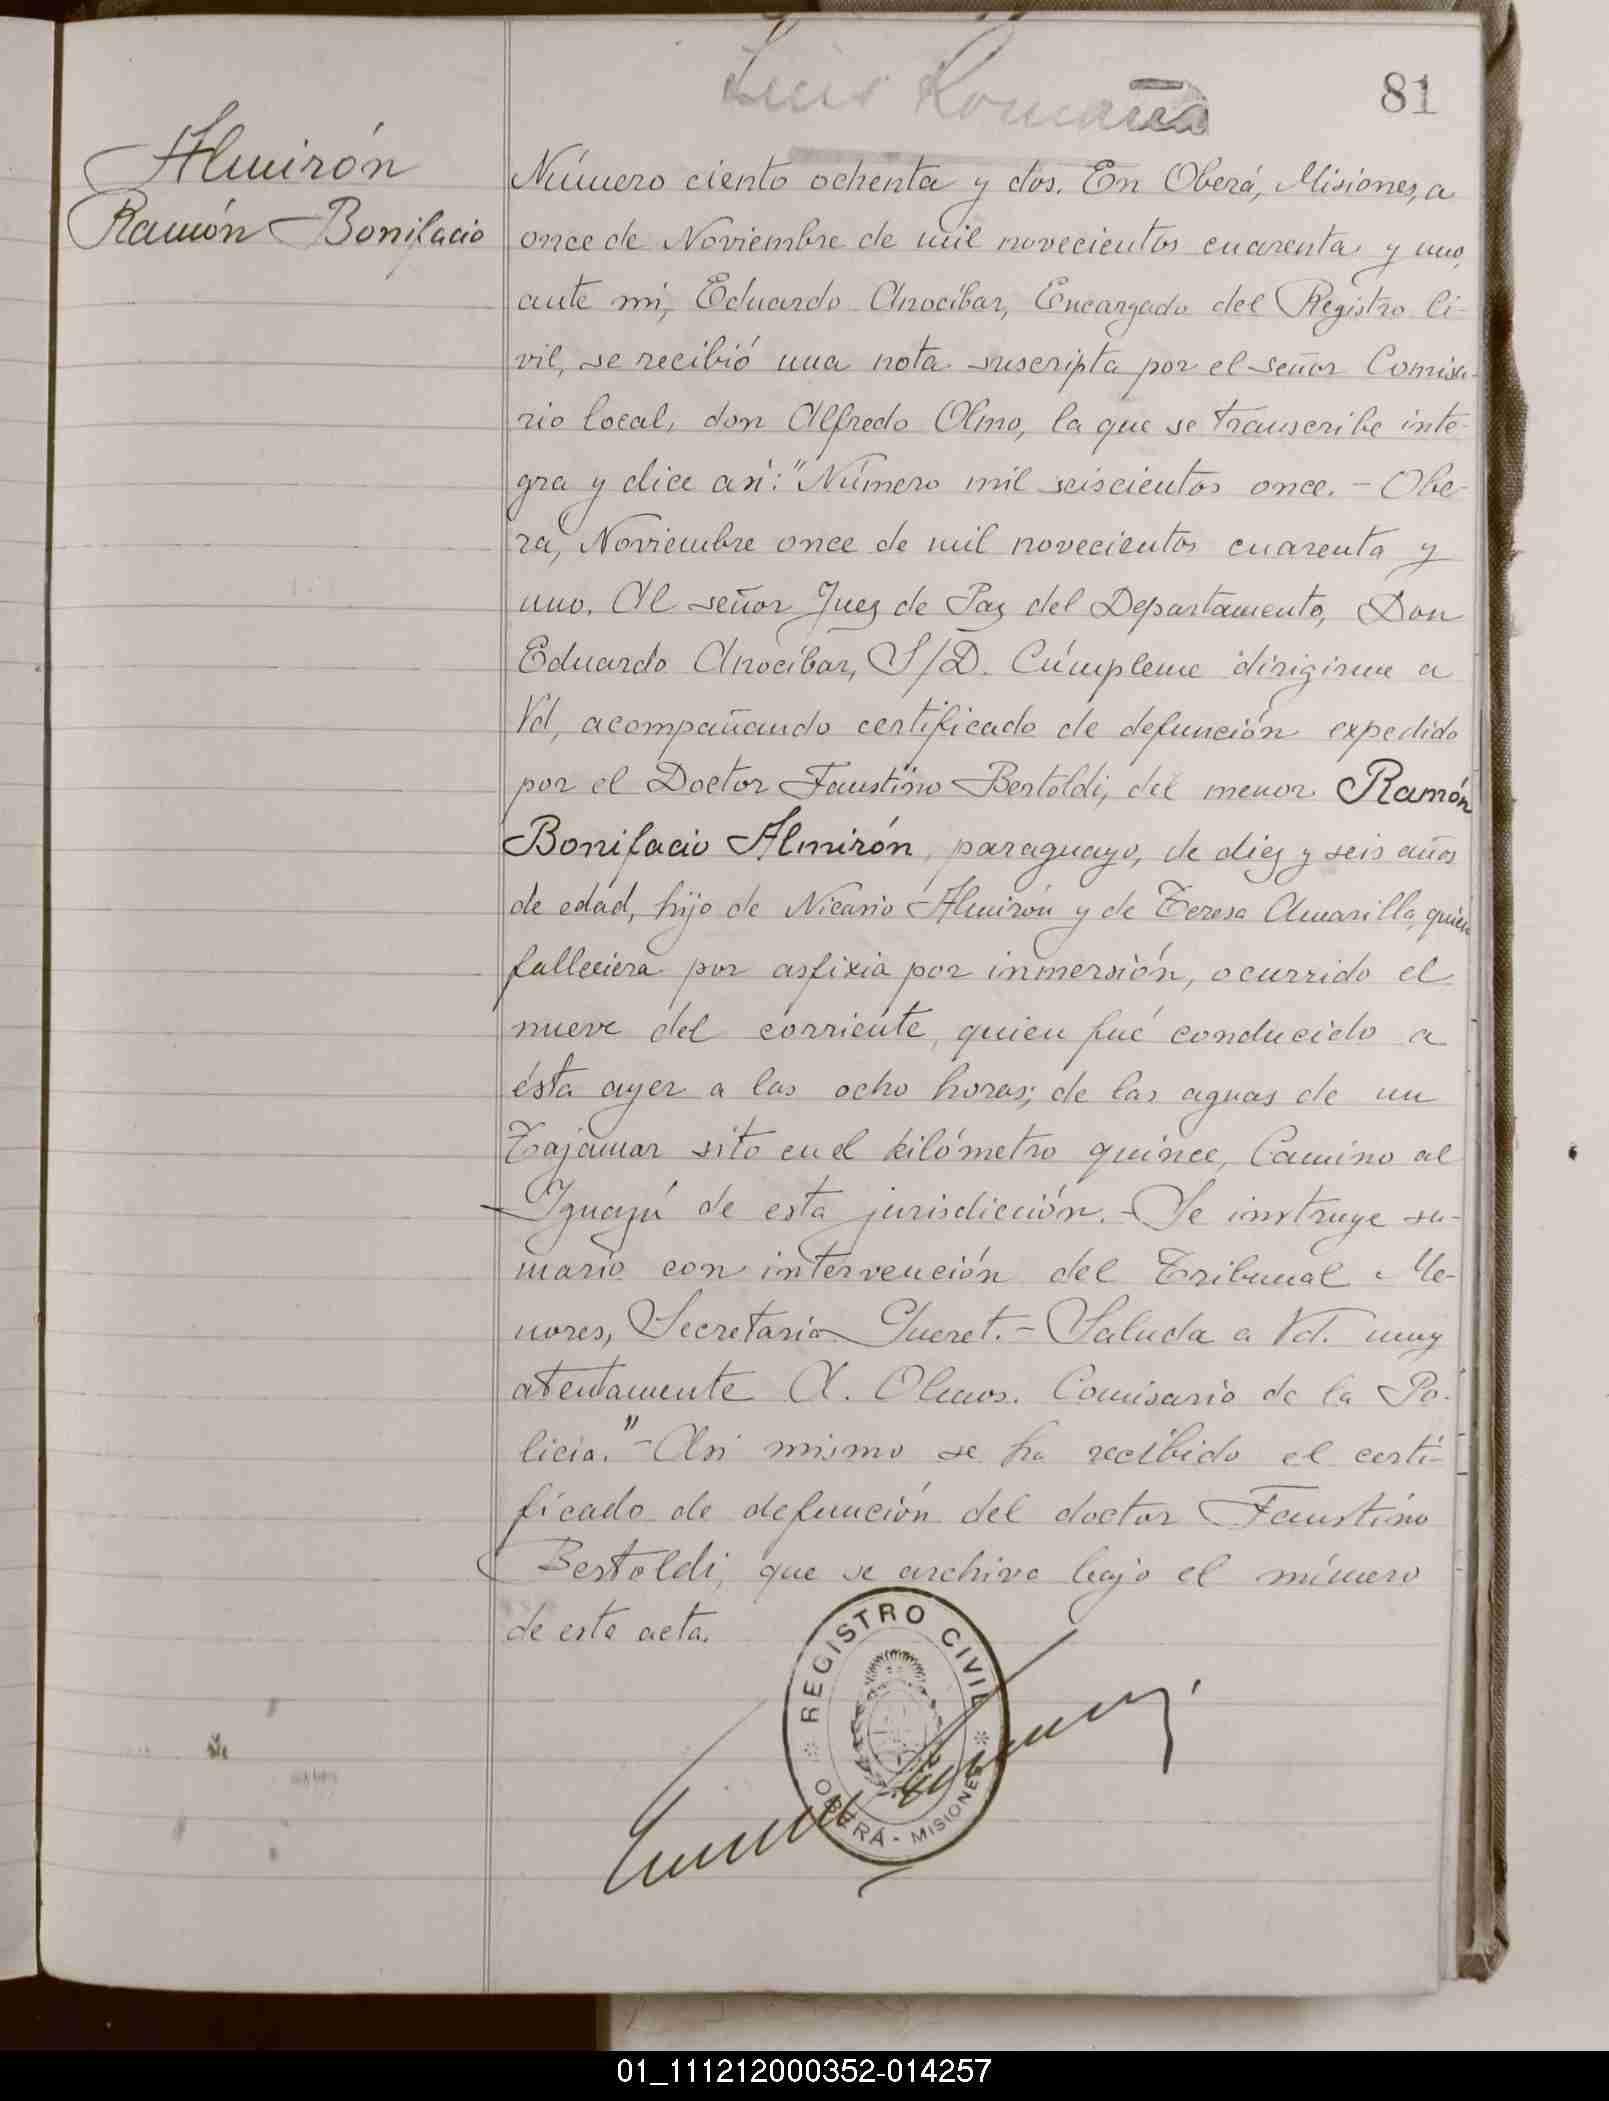 Luis Romaña
81
Almirón
Ramón Bonifacio
Número ciento ochenta y dos. En Oberá, Misiones, a
once de Noviembre de mil novecientos cuarenta y uno,
ante mí, Eduardo Anocíbar, Encargado del Registro Ci-
vil, se recibió una nota suscripta por el señor Comisa-
rio local, don Alfredo Olmo, la que se transcribe inte-
gra y dice así: "Número mil seiscientos once. - Obe-
rá, Noviembre once de mil novecientos cuarenta y
uno. Al señor Juez de Paz del Departamento, Don
Eduardo Anocíbar, S/D. Cúmpleme dirigirme a
Vd, acompañando certificado de defunción expedido
por el Doctor Faustino Bertoldi, del menor Ramón
Bonifacio Almirón, paraguayo, de diez y seis años
de edad, hijo de Nicasio Almirón y de Teresa Amarilla, quien
falleciera por asfixia por inmersión, ocurrido el
nueve del corriente, quien fué conducido a
ésta ayer a las ocho horas; de las aguas de un
Tajamar sito en el kilómetro quince, Camino al
Iguazú de esta jurisdicción. - Se instruye su-
mario con intervención del Tribunal Me-
nores, Secretaria Gueret. - Saluda a Vd. muy
atentamente A. Olmos. Comisario de la Po-
licía." - Así mismo se ha recibido el certi-
ficado de defunción del doctor Faustino
Bertoldi, que se archiva bajo el número
de esta acta.
REGISTRO CIVIL
OBERÁ - MISIONES
01_111212000352-014257